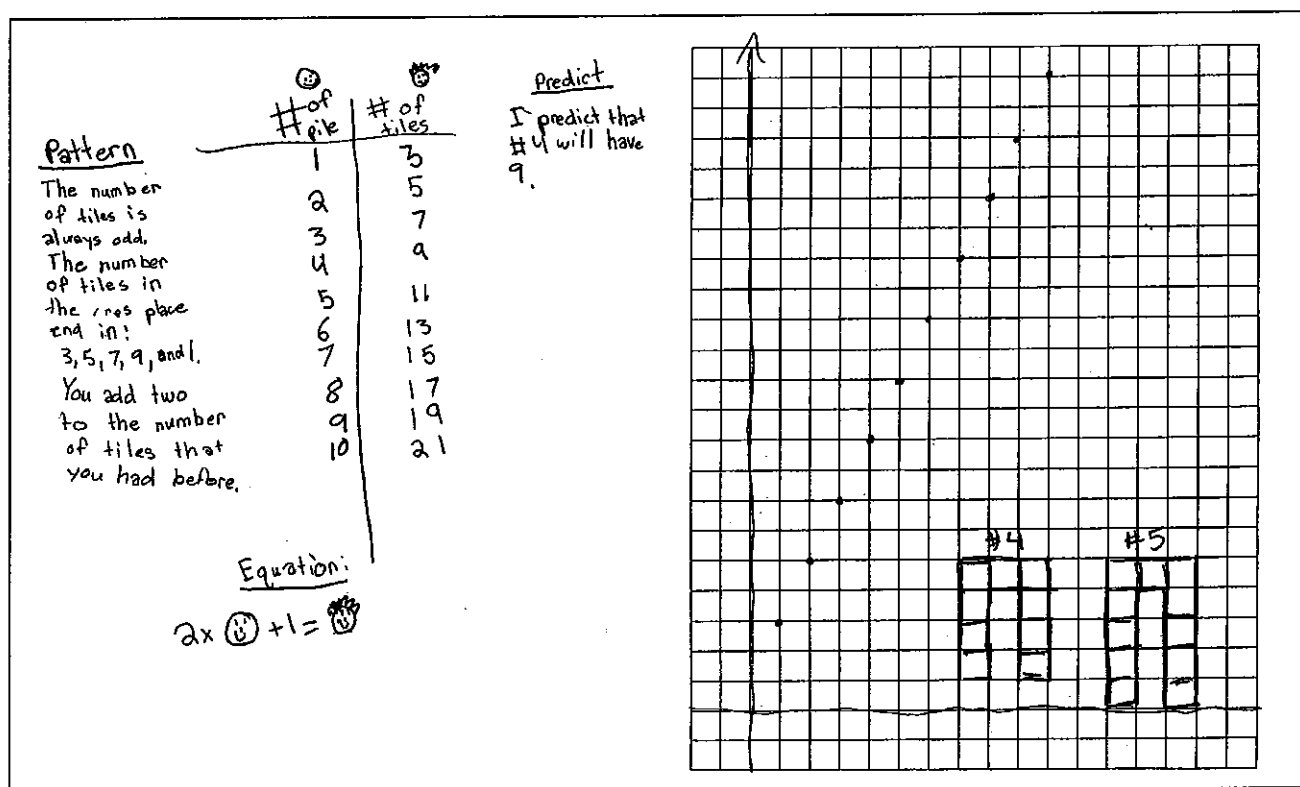 Pattern
The number
of tiles is
always odd.
The number
of tiles in
the ones place
end in:
3, 5, 7, 9, and 1.
You add two
to the number
of tiles that
you had before.
# of pile | # of tiles
1 3
2 5
3 7
4 9
5 11
6 13
7 15
8 17
9 19
10 21
Predict
I predict that
#4 will have
9.
Equation:
2x ☺ +1= ☺
#4 #5